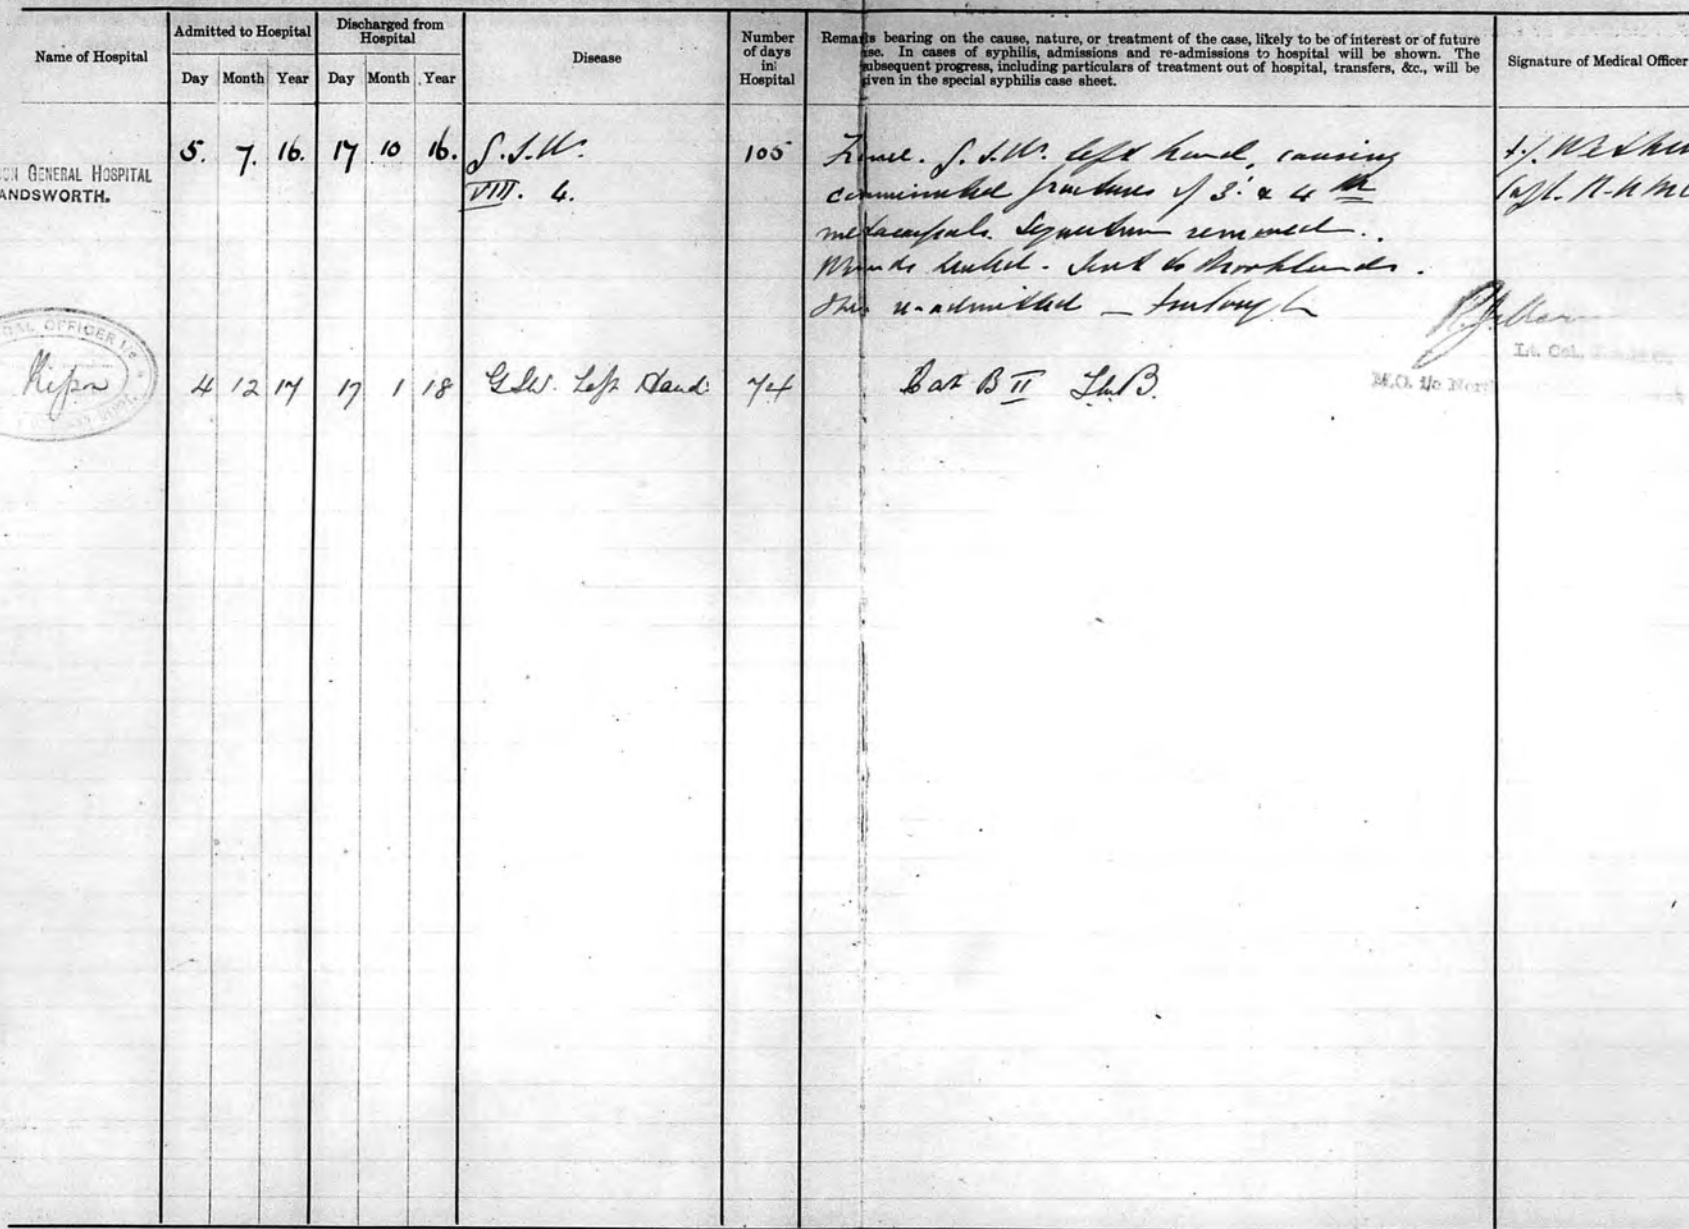 Name of Hospital
Admitted to Hospital
Day Month Year
Discharged from Hospital
Day Month Year
Disease
Number
of days
in
Hospital
Remarks bearing on the cause, nature, or treatment of the case, likely to be of interest or of future
use. In cases of syphilis, admissions and re-admissions to hospital will be shown. The
subsequent progress, including particulars of treatment out of hospital, transfers, &c., will be
given in the special syphilis case sheet.
Signature of Medical Officer
GENERAL HOSPITAL
ANDSWORTH.
5. 7. 16. 17 10 16. G.S.W.
VIII. 4.
105
G.S.W. left hand, causing
comminuted fractures of 3. & 4th
metacarpals. Sequestrum removed.
Wounds healed. Sent to
re-admitted — furlough
Capt.
OFFICER I/c
Ripon
4 12 17 17 1 18 G.S.W. Left Hand. 74 Cat B II
Lt. Col.
M.O. i/c